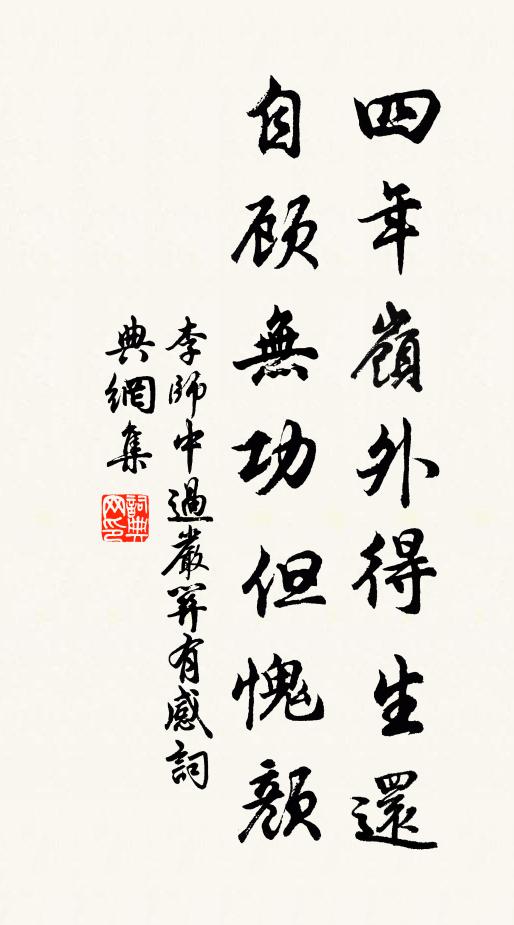 四年嶺外得生還
自顧無功但愧顏
李師中過嚴關有感詞
典網集
詞典
网印